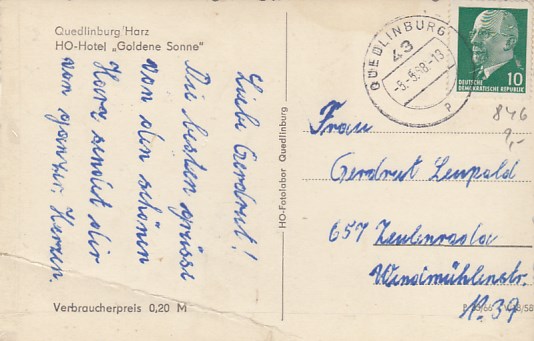 Quedlinburg/Harz
HO-Hotel „Goldene Sonne"
Liebe Gerdrut!
Die besten grüsse
von den schönen
Harz sendet dir
von ganzen Herzen.
Verbraucherpreis 0,20 M
HO-Fotolabor Quedlinburg
QUEDLINBURG
43
-8.-5.68-13
P
10
DEUTSCHE
DEMOKRATISCHE REPUBLIK
846
9,-
Frau
Gerdrut Leupold
657 Zeulenroda
Windmühlenstr.
N. 39